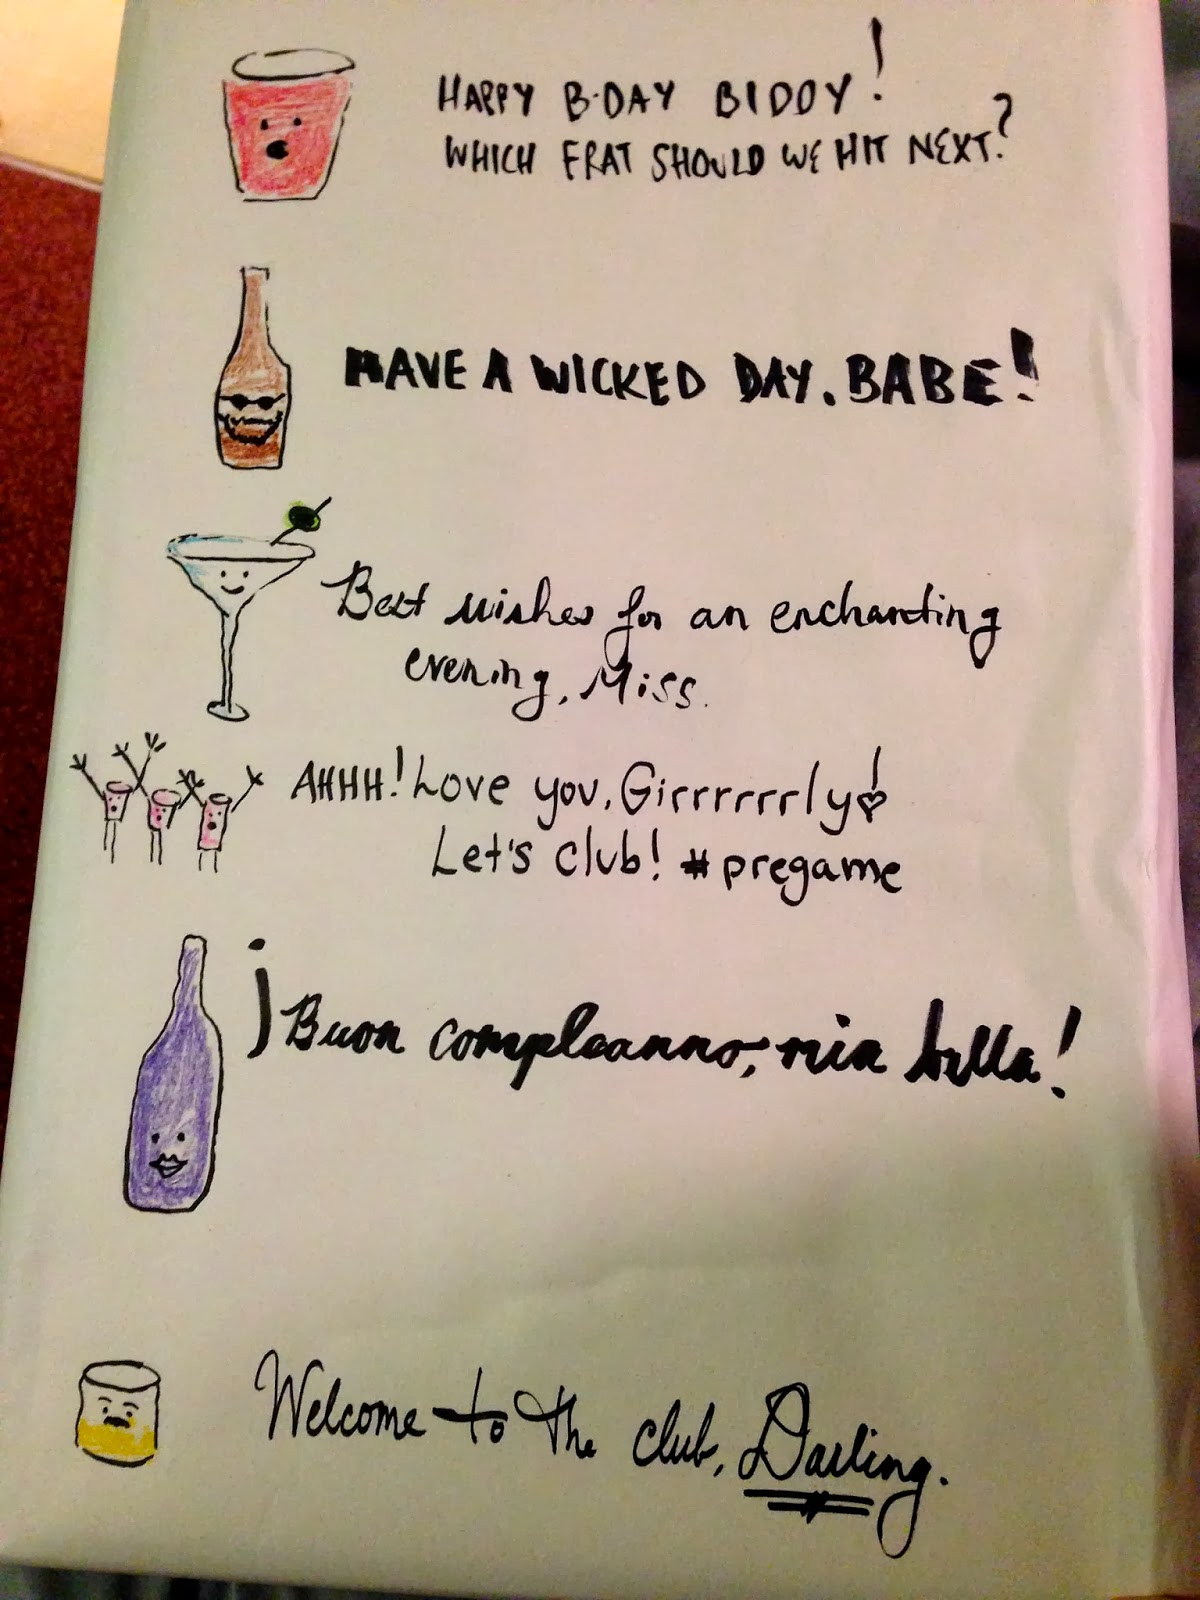 HAPPY B-DAY BIDDY!
WHICH FRAT SHOULD WE HIT NEXT?
HAVE A WICKED DAY, BABE!
Best wishes for an enchanting
evening, Miss.
AHHH! Love you, Girrrrrrrly!
Let's club! #pregame
¡Buon compleanno, mia bella!
Welcome to the club, Darling.